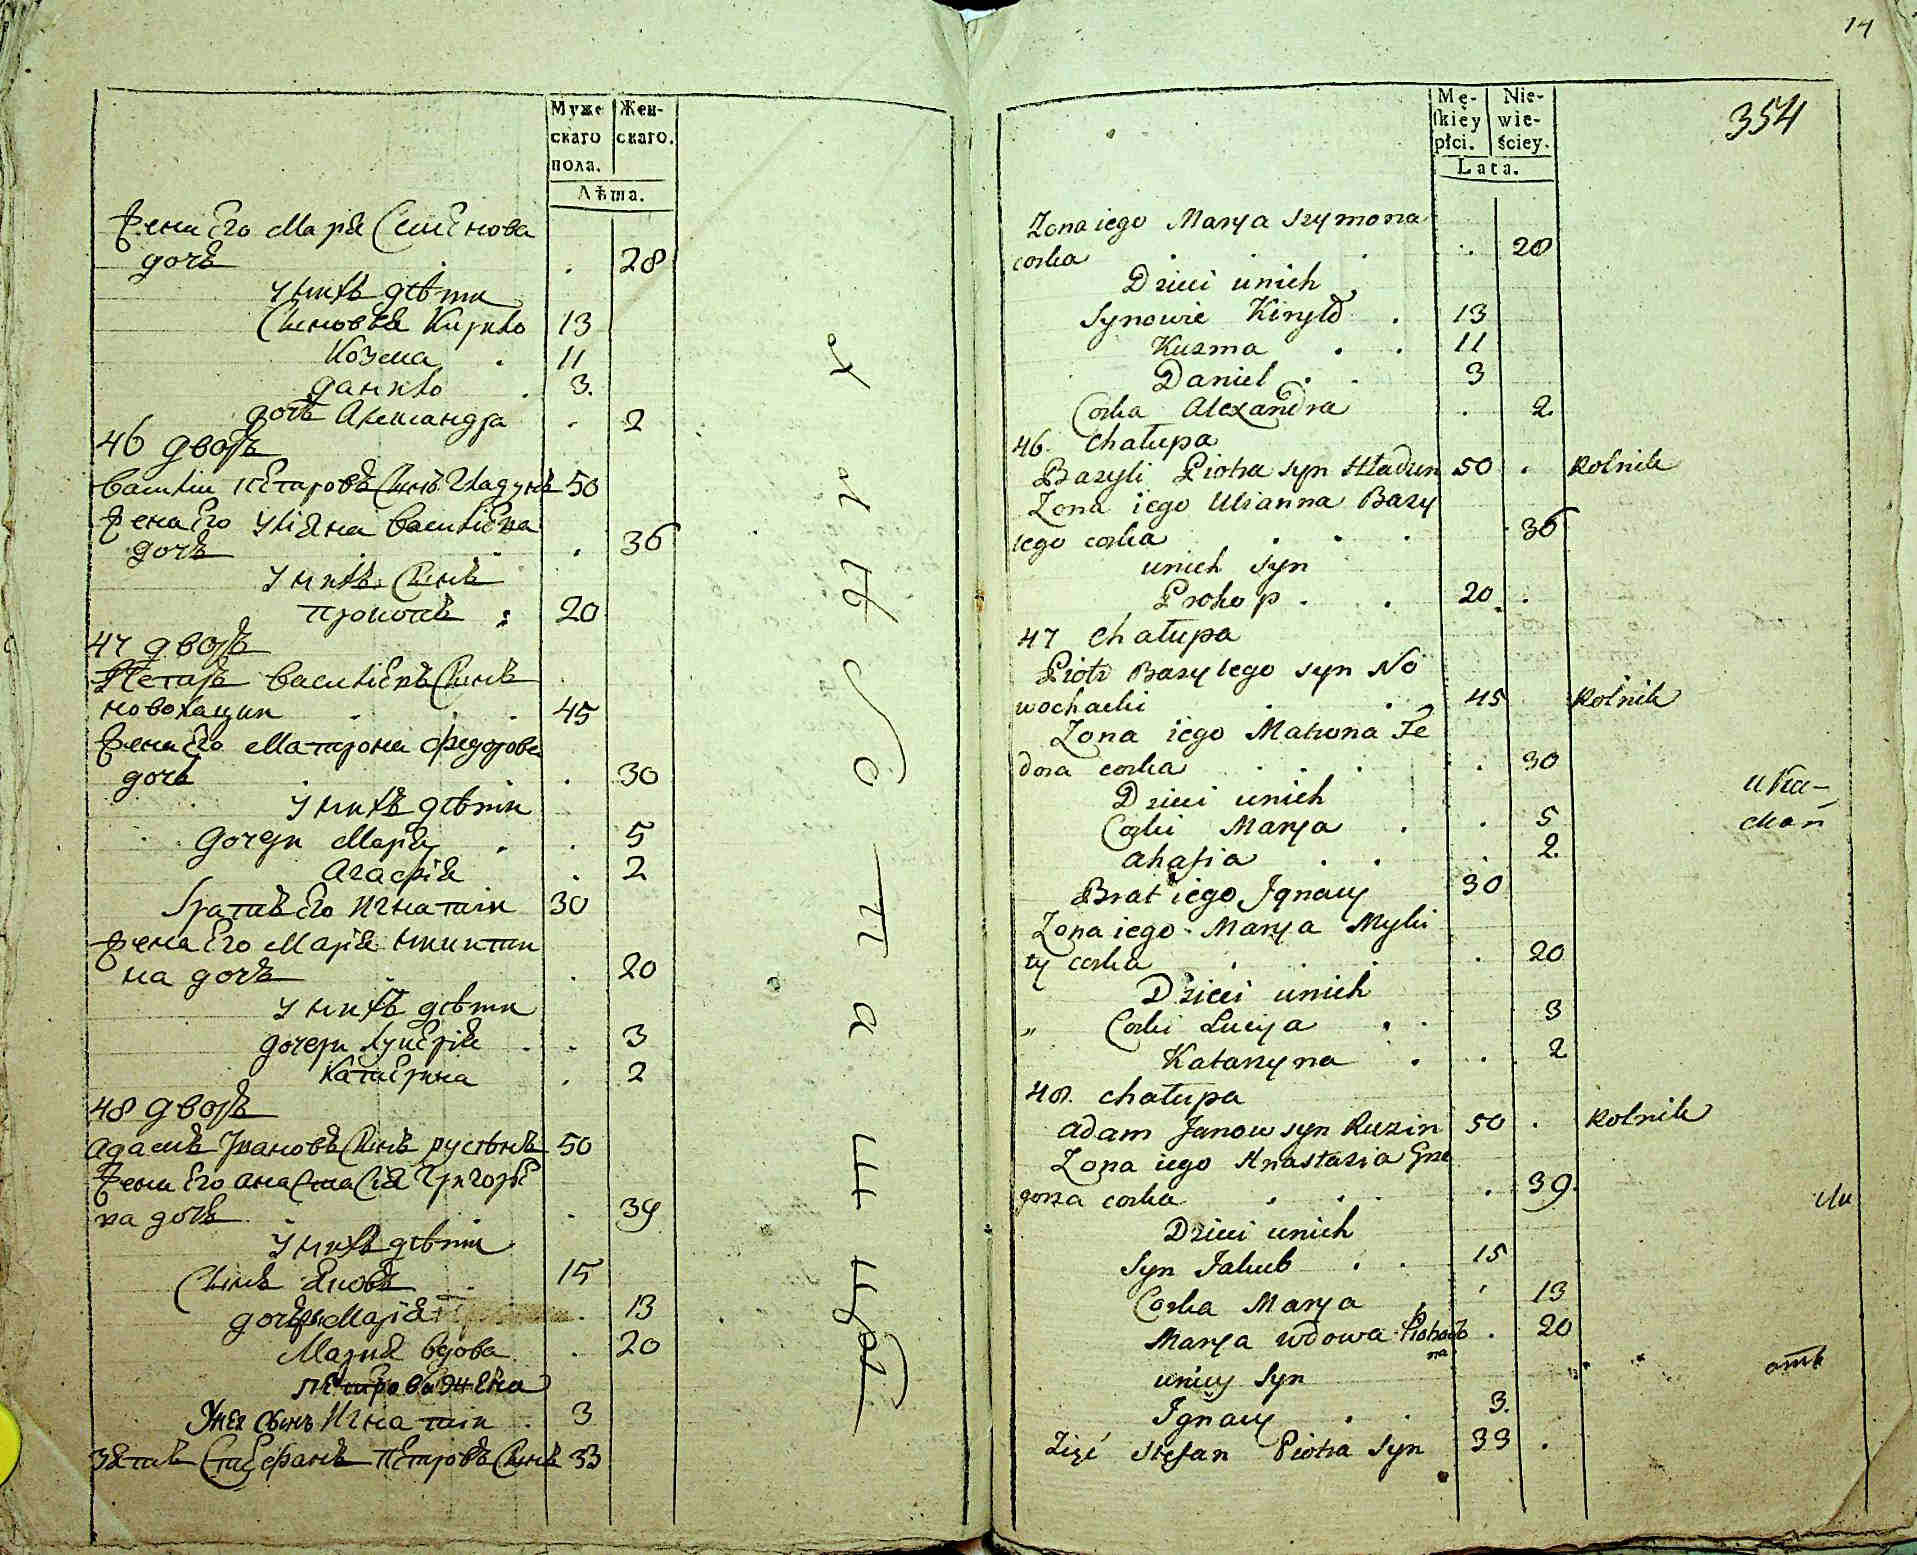 Муже
скаго
пола.
Жен-
скаго.
Лѣта.
Жена Его Марія Семенова
дочь . 28
У нихъ дѣти
Синовья Кирило 13
Козма . 11
Данило . 3.
дочь Александра . 2
46 дворъ
Василии Петровъ Синъ Гладунъ 50
Жена Его Улияна Василиева
дочь . 36
У нихъ Синъ
Прокопъ : 20
47 дворъ
Петаръ Василиевъ Синъ
Новохацки . . . 45
Жена Его Матрона Федорова
дочь . 30
У нихъ дѣти
Дочери Мария . . 5
Агафія . 2
Братъ Его Игнатіи 30
Жена Его Марія Микити
на дочь . 20
У нихъ дѣти
дочери Лукерія . . 3
Катерина . 2
48 дворъ
Адамъ Ивановъ Синъ Русинъ 50
Жена Его Анастасія Григорье
ва дочь . . 39
У нихъ дѣти
Синъ Яковъ 15
дочерь Марія . 13
Мария вдова . 20
Петрова жена
У нея сынъ Игнатіи . 3
Зять Стефанъ Петровъ Синъ 33
14
354
Mę-
skiey
płci.
Nie-
wie-
ściey.
Lata.
Zona iego Marya Szymona
corka . . . 28
Dzieci unich
Synowie Kiryło . 13
Kuzma . . 11
Daniel . . 3
Corka Alexandra . 2.
46. Chałupa
Bazyli Piotra syn Hładun 50 . Rolnik
Zona iego Ulianna Bazy
lego corka . . . 36
unich Syn
Prokop . . 20. .
47 Chałupa
Piotr Bazylego syn No
wochacki . . 45 Rolnik
Zona iego Matrona Fe
dora corka . . . . 30
Dzieci unich
Corki Marya . . 5
Ahafia . . . 2.
Brat iego Jgnacy 30
Zona iego Marya Myki
ty corka . . . . 20
Dzieci unich
„ Corki Lucya . . 3
Katarzyna . . . 2
48. Chałupa
Adam Janow syn Ruzin 50 . Rolnik
Zona iego Anastazia Grze
gorza corka . . . . 39.
Dzieci unich
Syn Jakub . . 15
Corka Marya . 13
Marya wdowa . 20
uniey Syn
Jgnacy . . 3.
Zięć Stefan Piotra Syn 33 .
отъ